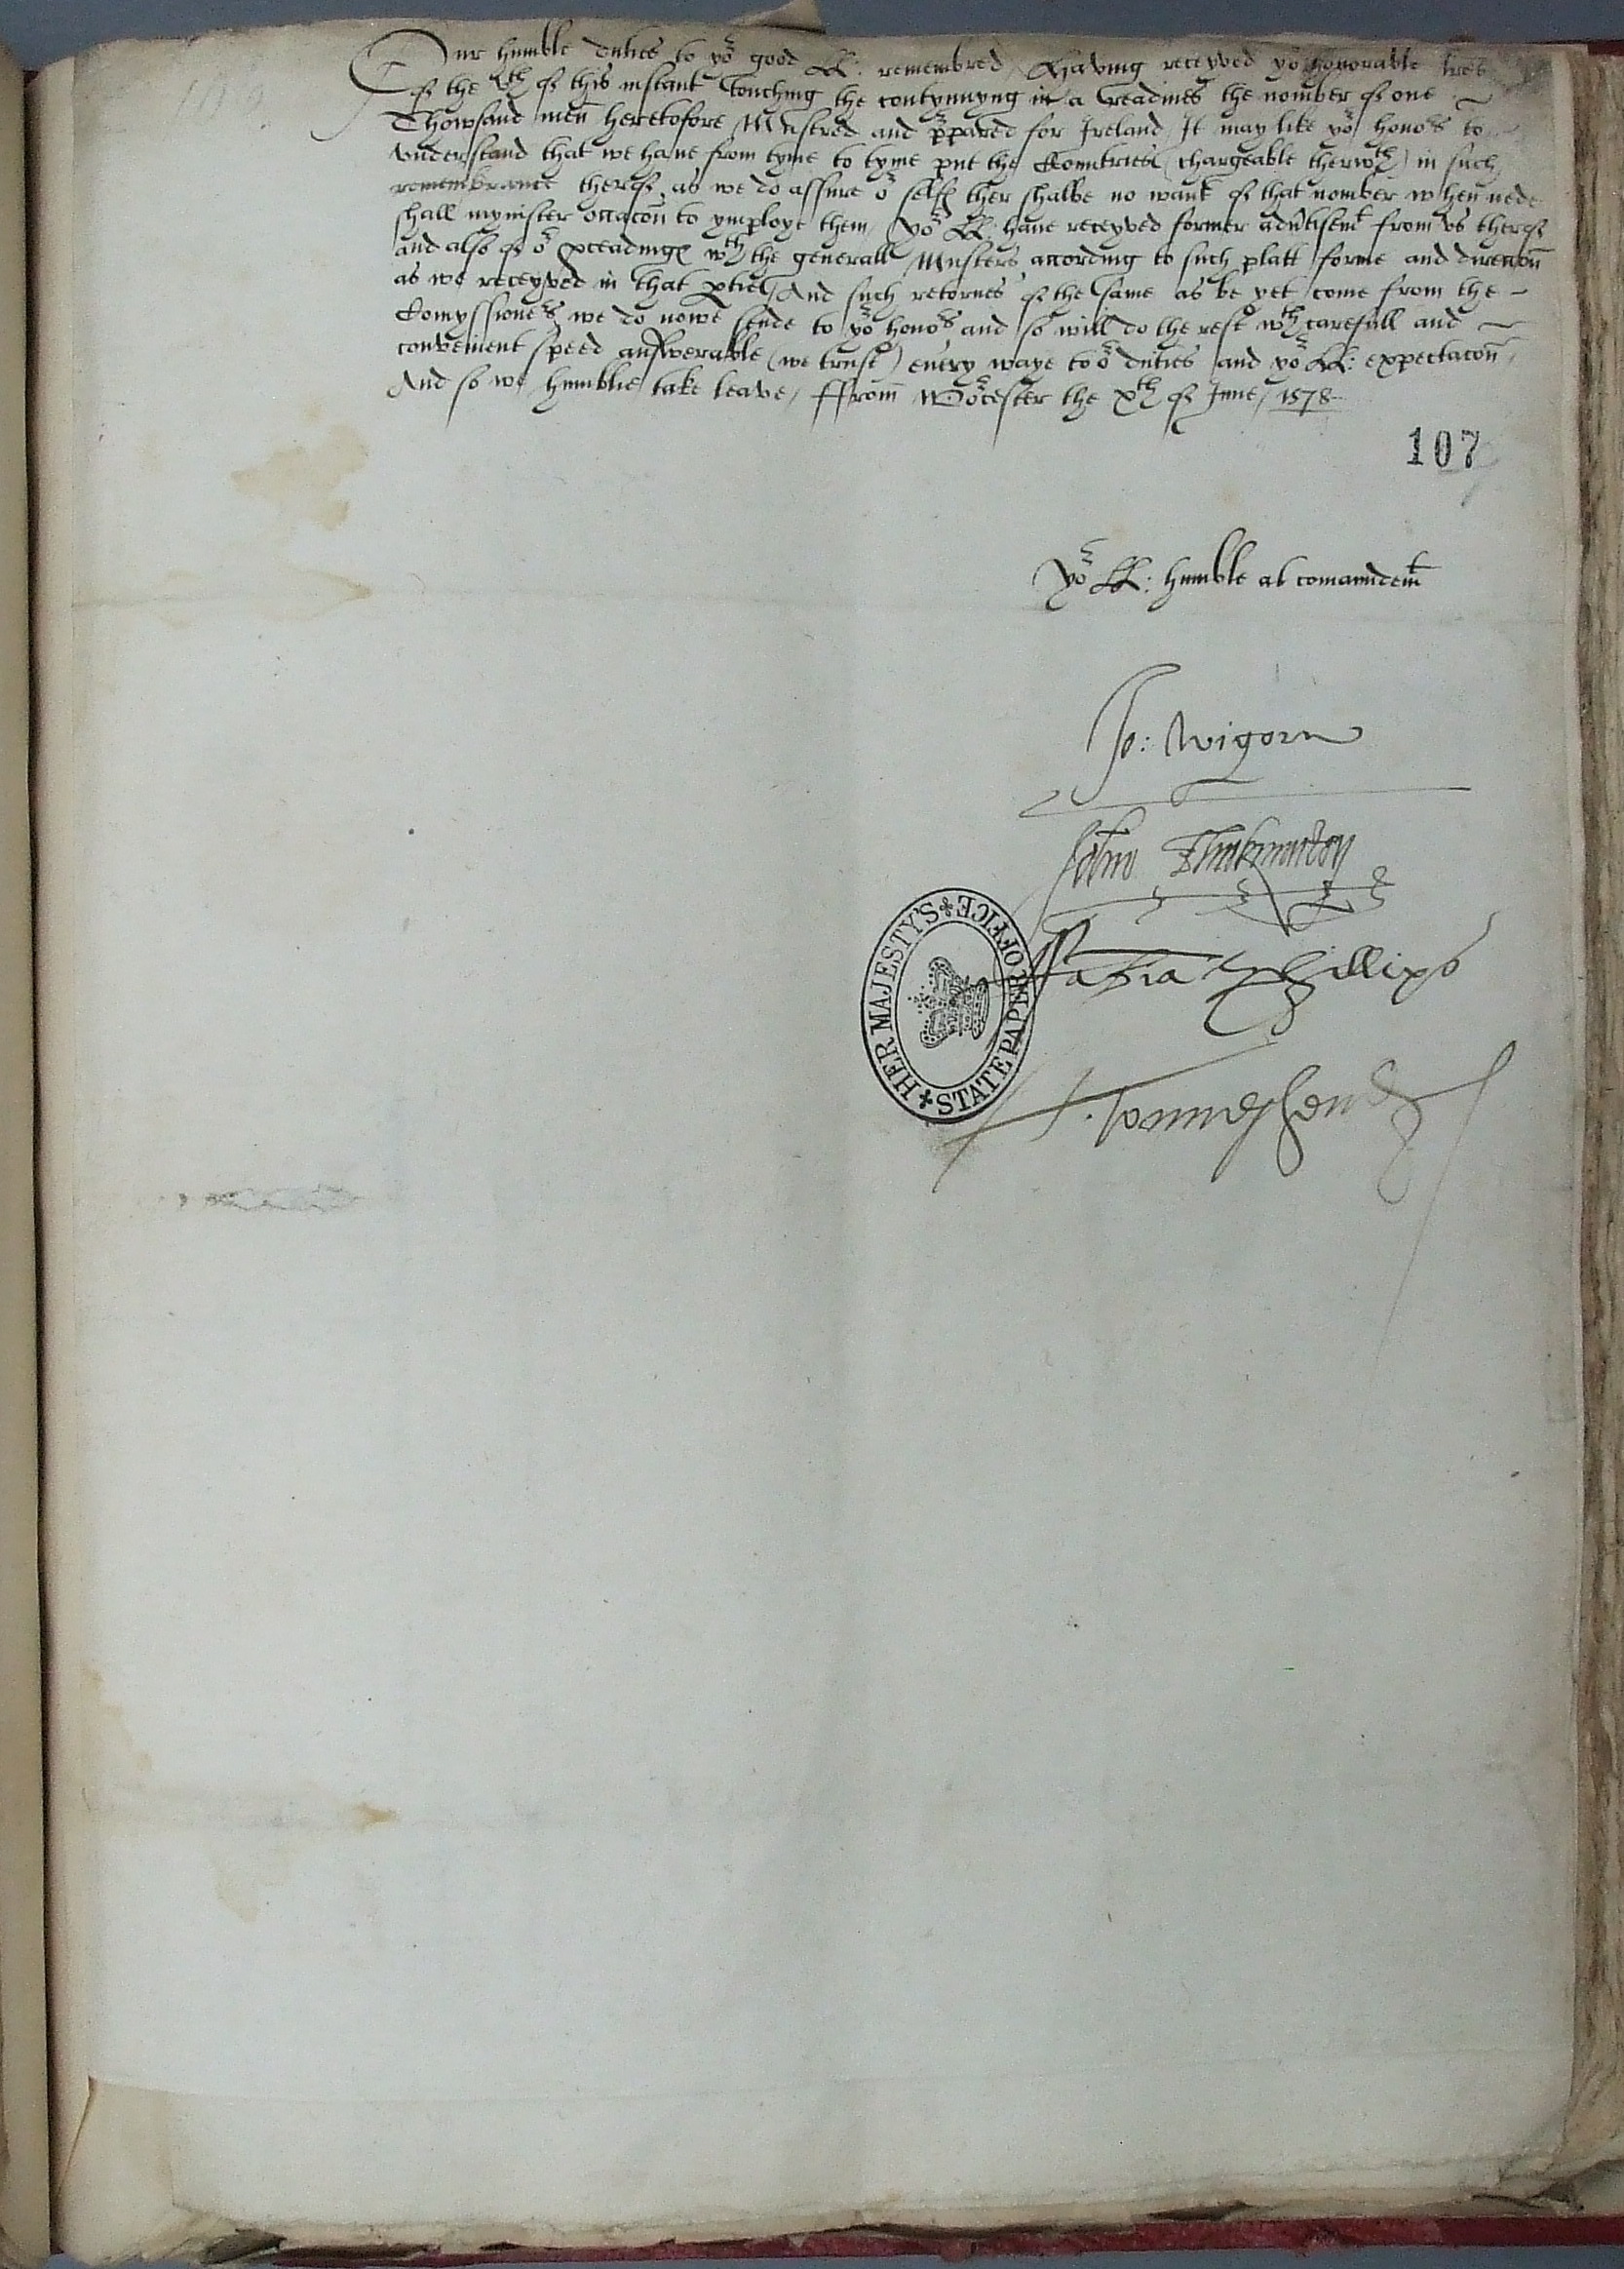 Our humble duties to yor good LL: remembred / Having receyved yor honorable lres
of the vth of this instant touching the contynuyng in a readines the nomber of one
Thowsand men heretofore Mustred and prpared for Ireland / It may like yor honors to
vnderstand that we haue from tyme to tyme put the Countries (chargeable therwth) in such
remembrance therof, as we do assure or selfs ther shalbe no want of that nomber when nede
shall mynister occacon to ymploye them / Yor LL: haue receyved former advtisemt from vs therof
and also of or pceadings wth the generall Musters according to such platt forme and direccon
as we receyved in that ptie / And such retornes of the same as be yet come from the
Comyssioners we do nowe sende to yor honors and so will do the rest wth carefull and
convenient speed answerable (we trust) euery waye to or duties and yor LL: expectacon /
And so we humblie take leave / ffrom Worcester the xth of June / 1578
107
Yor LL: humble at comaundemt
Jo: Wigorn
John Thrkmarton
Fabian Phillips
H. Towneshend
HER MAJESTY'S STATE PAPER OFFICE